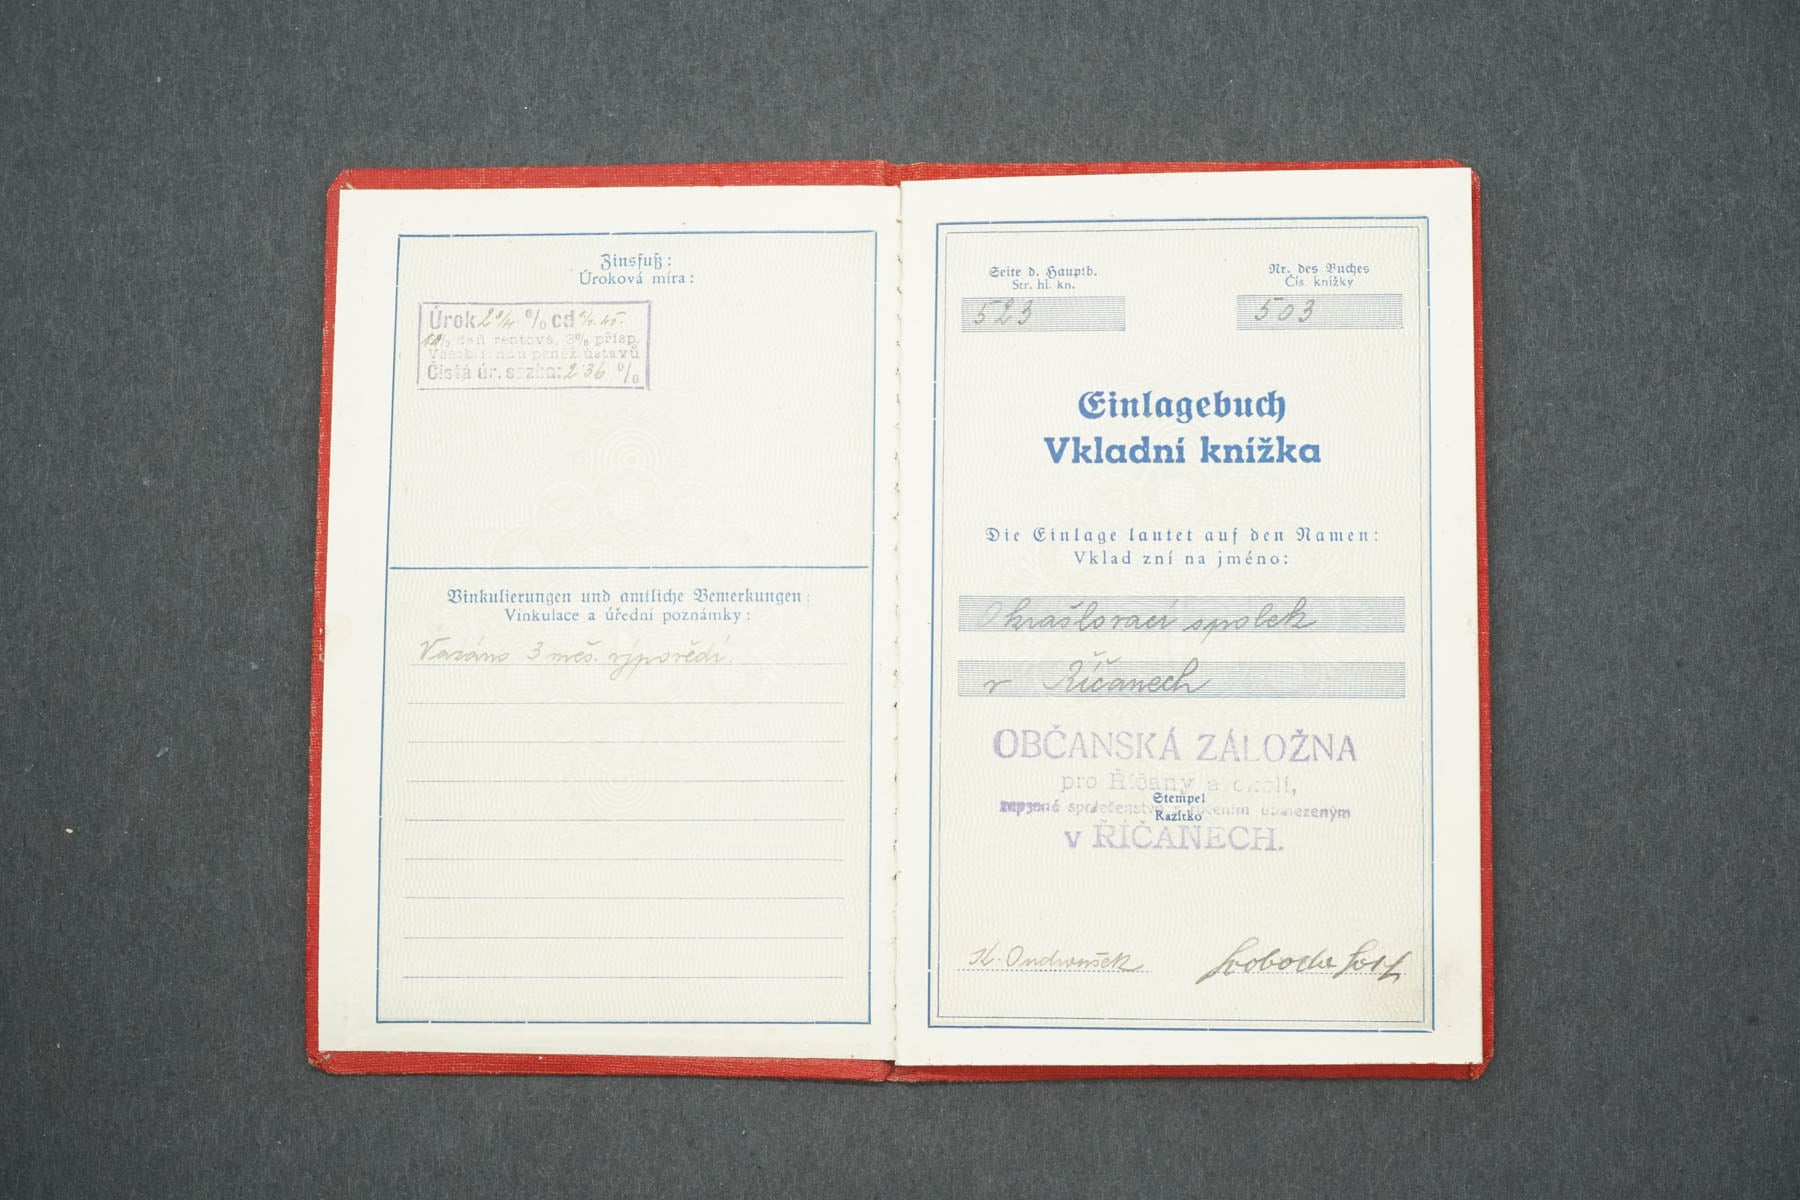 Zinsfuß:
Úroková míra:
Úrok % od
daň rentová, 3% přísp.
Všeob. fondu peněž. ústavů
Čistá úr. sazba: 2˙36 %
Vinkulierungen und amtliche Bemerkungen:
Vinkulace a úřední poznámky:
Vázáno 3 měs. výpovědí.
Seite d. Hauptb.
Str. hl. kn.
523
Nr. des Buches
Čís. knížky
503
Einlagebuch
Vkladní knížka
Die Einlage lautet auf den Namen:
Vklad zní na jméno:
Okrašlovací spolek
v Říčanech
OBČANSKÁ ZÁLOŽNA
pro Říčany a okolí,
Stempel
zapsané společenstvo s ručením obmezeným
Razítko
v ŘÍČANECH.
K. Ondroušek
Svoboda